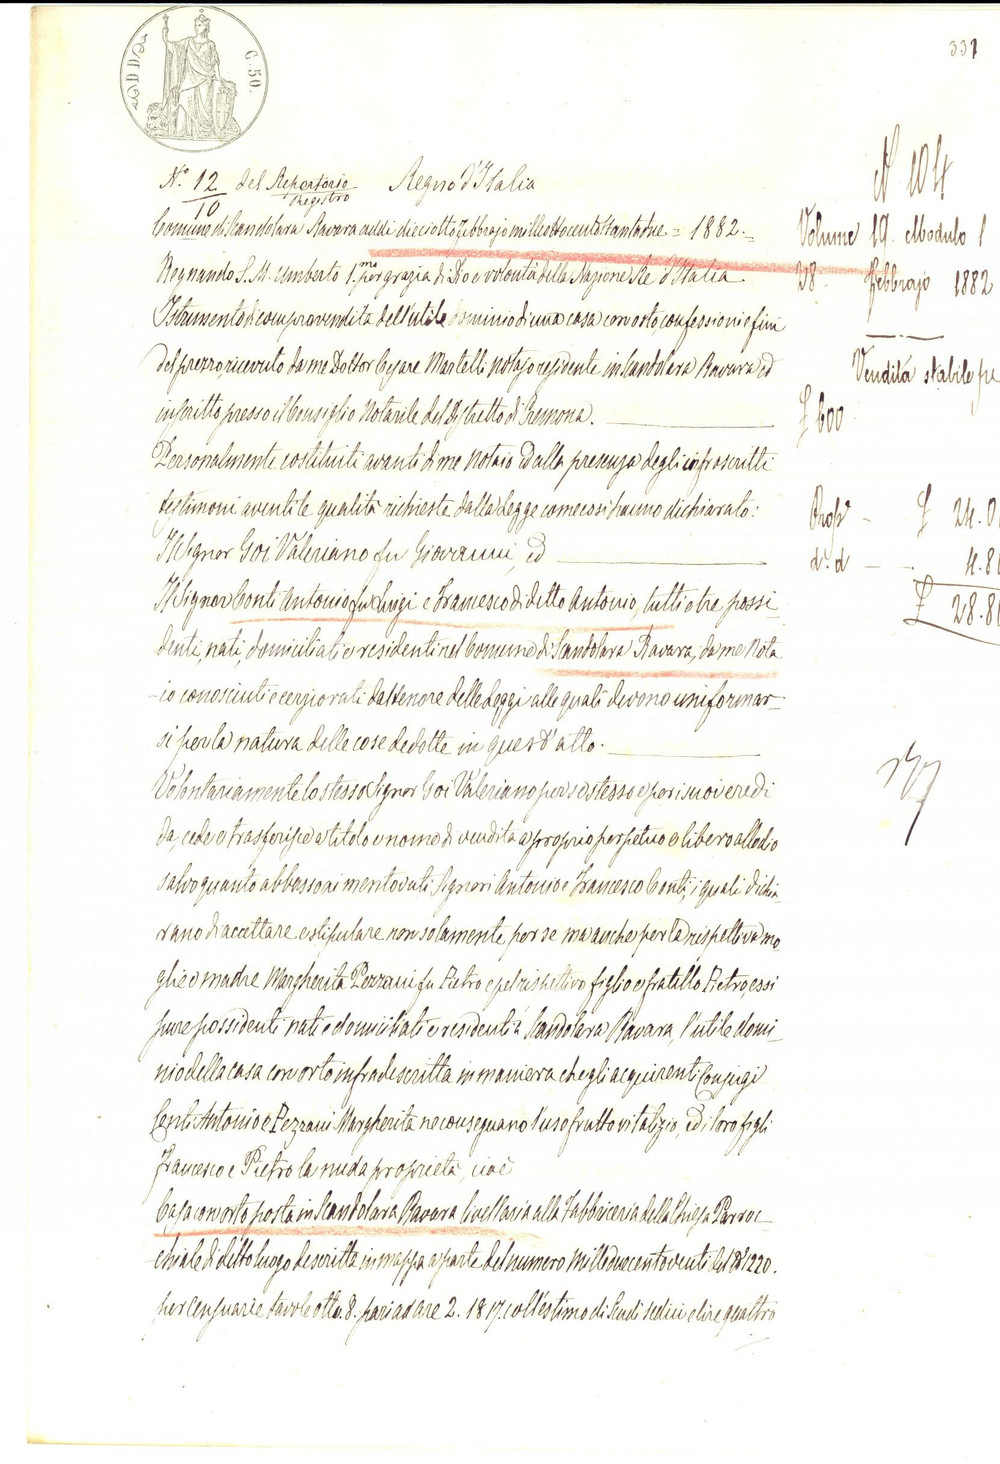 331
C. 50.
N.° 12/10 del Repertorio/Registro Regno d'Italia
Comune di Scandolara Ravara addì dieciotto Febbrajo mille ottocento ottantadue = 1882. =
Regnando S. M. Umberto 1.mo per grazia di Dio e volontà della Nazione Re d'Italia
Istrumento di compravendita dell'utile dominio di una casa con orto, confessioni e fini
del prezzo, ricevuto da me Dottor Cesare Martelli Notajo residente in Scandolara Ravara ed
inscritto presso il Consiglio Notarile del Distretto di Cremona.
Personalmente costituiti avanti di me Notaio ed alla presenza degli infrascritti
testimoni aventi le qualità richieste dalla Legge come così hanno dichiarato:
Il Signor Goi Valeriano fu Giovanni, ed
Il Signor Conti Antonio fu Luigi e Francesco di detto Antonio, tutti e tre possi-
denti, nati, domiciliati e residenti nel Comune di Scandolara Ravara, da me Nota
-io conosciuti e cerziorati dal tenore delle Leggi alle quali devono uniformar-
si per la natura delle cose dedotte in quest'atto.
Volontariamente lo stesso Signor Goi Valeriano per se stesso e per i suoi eredi
da, cede e trasferisce a titolo e nome di vendita a proprio perpetuo e libero allodio
salvo quanto abbasso ai mentovati Signori Antonio e Francesco Conti, i quali dichia-
rano di accettare e stipulare non solamente per se ma anche per la rispettiva mo
glie e madre Margherita Pezzani fu Pietro e pel rispettivo figlio e fratello Pietro, essi
pure possidenti nati e domiciliati e residenti a Scandolara Ravara, l'utile domi-
nio della casa con orto infradescritta in maniera che gli acquirenti Conjugi
Conti Antonio e Pezzani Margherita ne conseguano l'usofrutto vitalizio, ed i loro figli
Francesco e Pietro la nuda proprietà, cioè
Casa con orto posta in Scandolara Ravara livellaria alla Fabbriceria della Chiesa Parroc-
chiale di detto luogo descritta in mappa a parte del numero Mille duecento venti del N° 1220.
per censuarie tavole otto. 8. pari ad are 2. 18 17. coll'estimo di Scudi sedici e lire quattro
N 104
Volume 19. Modulo 1
28 Febbrajo 1882
Vendita stabile pe
£ 600
Prop° - £ 24.0
d.° d - - 4.80
£ 28.80